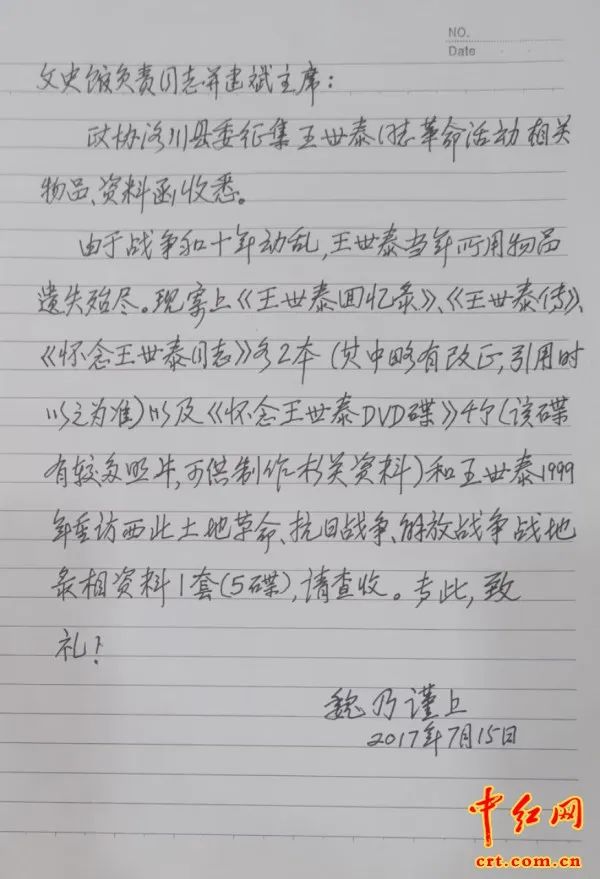 NO.
Date
文史馆负责同志并建斌主席：
政协洛川县委征集王世泰同志革命活动相关
物品、资料函收悉。
由于战争和十年动乱，王世泰当年所用物品
遗失殆尽。现寄上《王世泰回忆录》、《王世泰传》、
《怀念王世泰同志》各2本（其中略有改正，引用时
以之为准）以及《怀念王世泰DVD碟》4个（该碟
有较多照片，可供制作相关资料）和王世泰1999
年重访西北土地革命、抗日战争、解放战争战地
录相资料1套(5碟)，请查收。专此，致
礼！
魏乃谨上
2017年7月15日
中红网
crt.com.cn